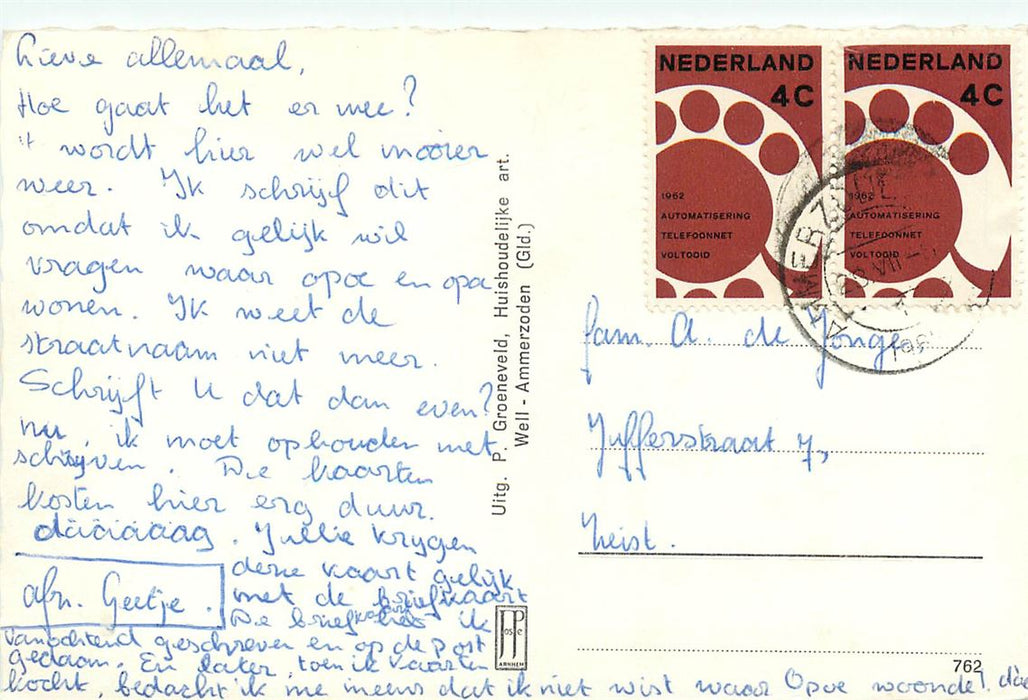 Lieve allemaal,
Hoe gaat het er mee?
't wordt hier wel mooier
weer. Ik schrijf dit
omdat ik gelijk wil
vragen waar opoe en opa
wonen. Ik weet de
straatnaam niet meer.
Schrijft U dat dan even?
nu, ik moet ophouden met
schrijven. De kaarten
kosten hier erg duur.
dààààààg. Jullie krijgen
deze kaart gelijk
met de briefkaart
De briefkaart heb ik
vanochtend geschreven en op de post
gedaan. En later, toen ik kaarten
kocht, bedacht ik me ineens dat ik niet wist waar Opoe woonde!
afz. Geetje.
Uitg. P. Groeneveld, Huishoudelijke art.
Well - Ammerzoden (Gld.)
JP
ARNHEM
NEDERLAND
4C
1962
AUTOMATISERING
TELEFOONNET
VOLTOOID
NEDERLAND
4C
1962
AUTOMATISERING
TELEFOONNET
VOLTOOID
AMMERZODEN
fam. A. de Jonge
Jufferstraat 7,
Zeist.
762